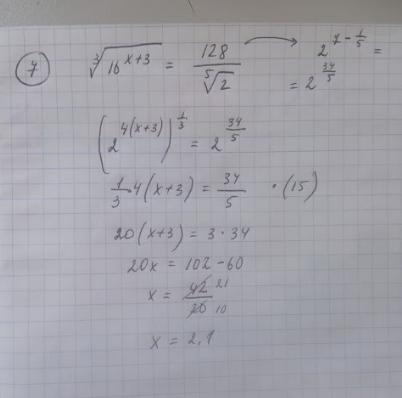 7 ∛(16^(x+3)) = 128 / ⁵√2 → 2^(7 - 1/5) =
= 2^(34/5)
(2^(4(x+3)))^(1/3) = 2^(34/5)
1/3 · 4(x+3) = 34/5 · (15)
20(x+3) = 3 · 34
20x = 102 - 60
x = 42/20 21/10
x = 2,1